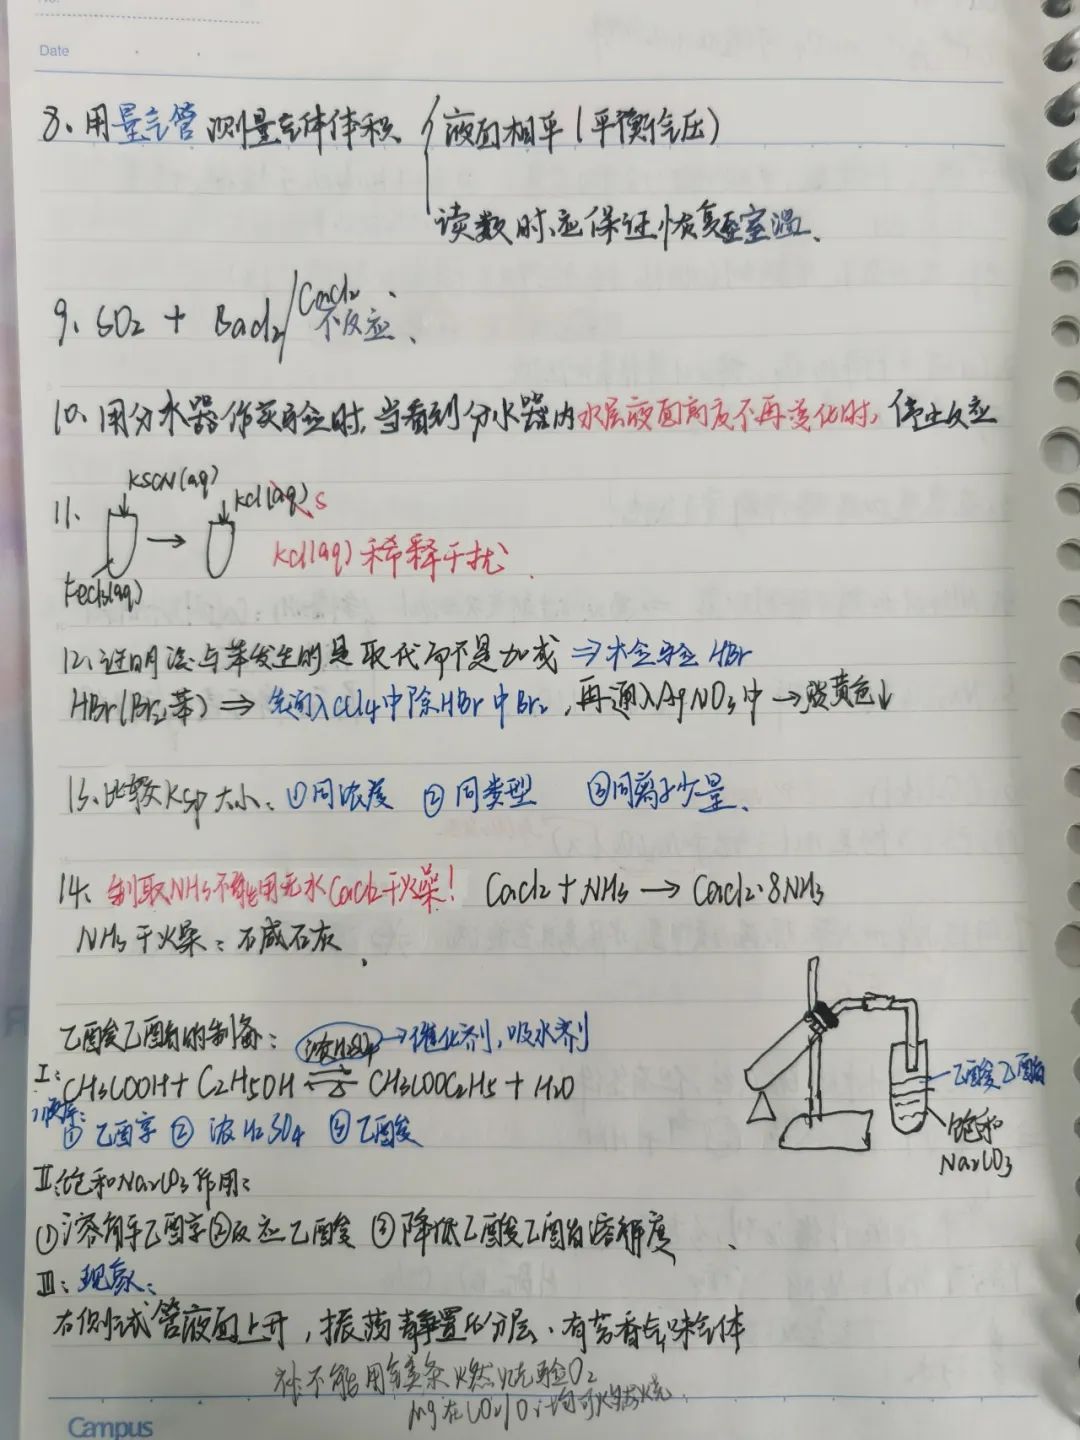 Date
8、用量气管测量气体体积 液面相平(平衡气压)
读数时应保证恢复至室温、
9、SO2 + BaCl2/CaCl2 不反应、
10、用分水器作实验时,当看到分水器内水层液面高度不再变化时,停止反应
KSCN(aq)
KCl(aq) s
11、
KCl(aq)稀释干扰
FeCl3(aq)
12、证明溴与苯发生的是取代而不是加成 ⇒ 检验HBr
HBr(Br2,苯) ⇒ 先通入CCl4中除HBr中Br2,再通入AgNO3中→淡黄色↓
13、比较Ksp大小:①同浓度 ②同类型 ③同离子少量、
14、制取NH3不能用无水CaCl2干燥! CaCl2+NH3→CaCl2·8NH3
NH3干燥:石咸石灰
乙酸乙酯的制备:浓H2SO4→催化剂,吸水剂
I:CH3COOH+C2H5OH⇌CH3COOC2H5+H2O
乙酸乙酯
顺序:
①乙醇 ②浓H2SO4 ③乙酸
饱和
Na2CO3
II:饱和Na2CO3作用:
①溶解乙醇②反应乙酸 ③降低乙酸乙酯溶解度、
III:现象:
右侧试管液面上升,振荡静置后分层、有芳香气味气体
补:不能用镁条燃烧验O2
Mg在CO2/O2均可燃烧
Campus